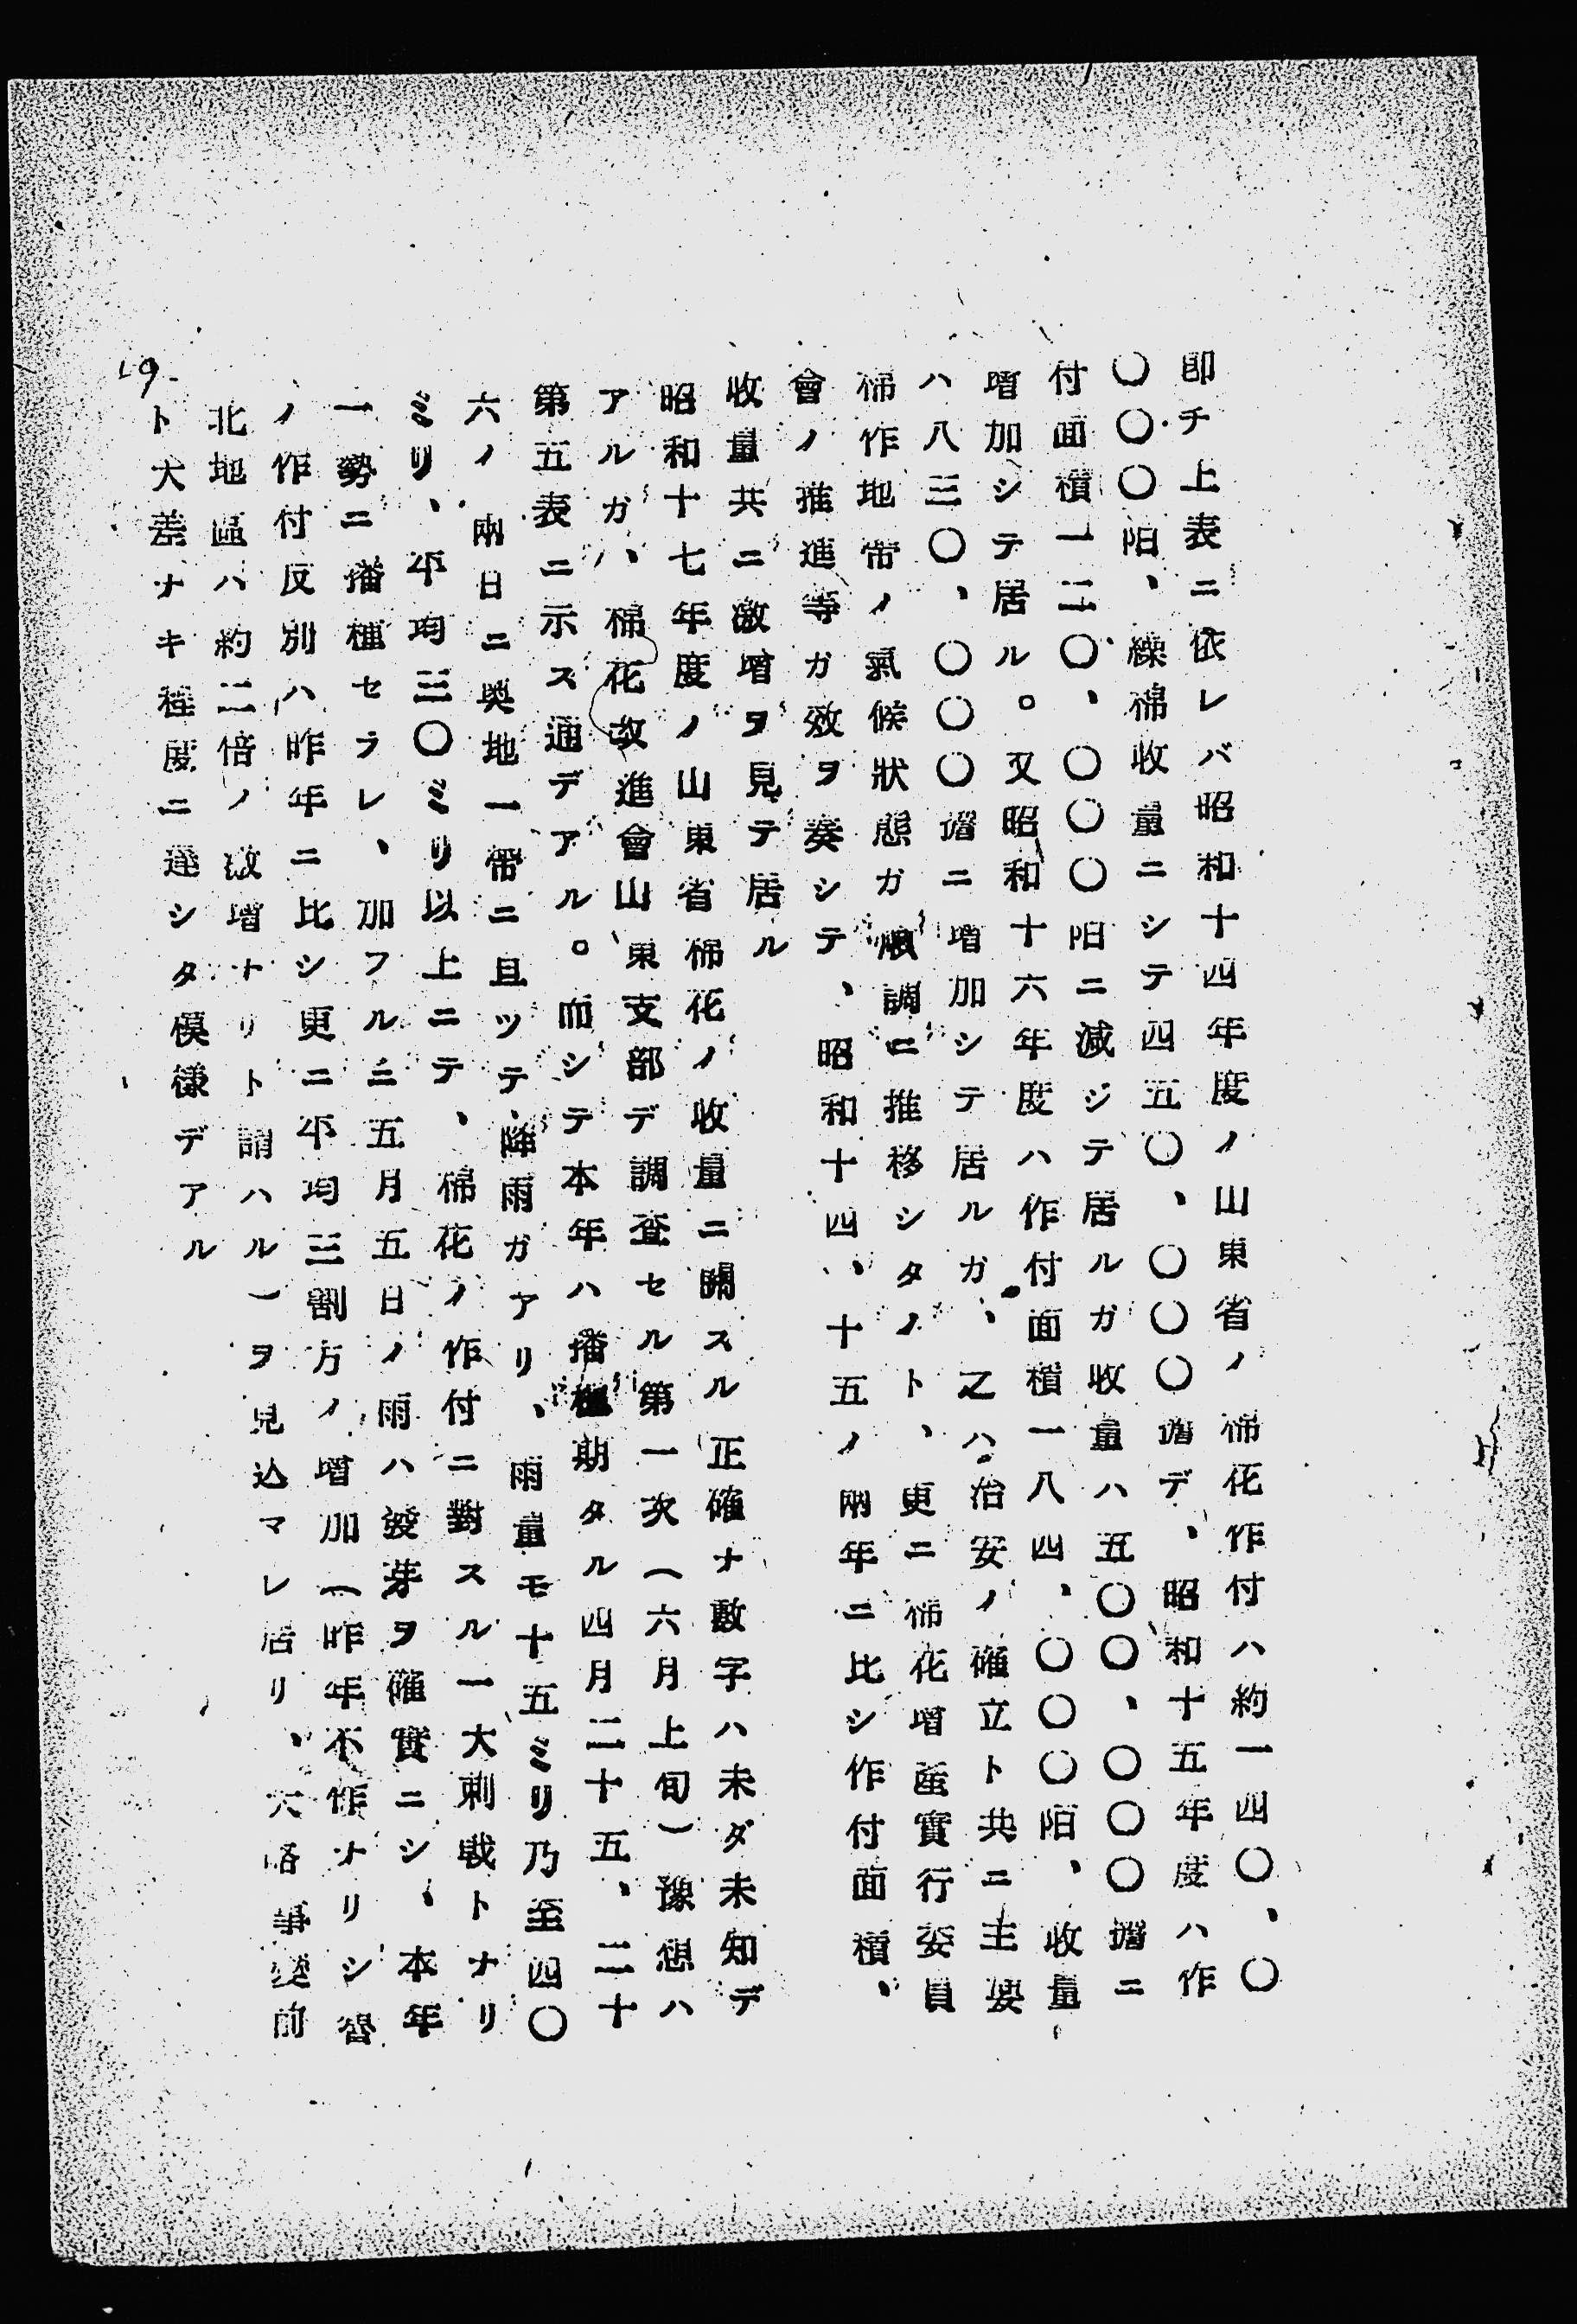 卽チ上表ニ依レバ昭和十四年度ノ山東省ノ棉花作付ハ約一四〇、〇
〇〇〇陌、繰棉收量ニシテ四五〇、〇〇〇擔デ、昭和十五年度ハ作
付面積一二〇、〇〇〇陌ニ減ジテ居ルガ收量ハ五〇〇、〇〇〇擔ニ
增加シテ居ル。又昭和十六年度ハ作付面積一八四、〇〇〇陌、收量
ハ八三〇、〇〇〇擔ニ增加シテ居ルガ、之ハ治安ノ確立ト共ニ主要
棉作地帶ノ氣候狀態ガ順調ニ推移シタノト、更ニ棉花增產實行委員
會ノ推進等ガ效ヲ奏シテ、昭和十四、十五ノ兩年ニ比シ作付面積、
收量共ニ激增ヲ見テ居ル
昭和十七年度ノ山東省棉花ノ收量ニ關スル正確ナ數字ハ未ダ未知デ
アルガ、棉花改進會山東支部デ調査セル第一次(六月上旬)豫想ハ
第五表ニ示ス通デアル。而シテ本年ハ播種期タル四月二十五、二十
六ノ兩日ニ奧地一帶ニ亘ッテ降雨ガアリ、雨量モ十五ミリ乃至四〇
ミリ、平均三〇ミリ以上ニテ、棉花ノ作付ニ對スル一大刺戟トナリ
一勢ニ播種セラレ、加フルニ五月五日ノ雨ハ發芽ヲ確實ニシ、本年
ノ作付反別ハ昨年ニ比シ更ニ平均三割方ノ增加(昨年不作ナリシ魯
北地區ハ約二倍ノ激增ナリト謂ハル)ヲ見込マレ居リ、大略事變前
ト大差ナキ程度ニ達シタ模樣デアル
19